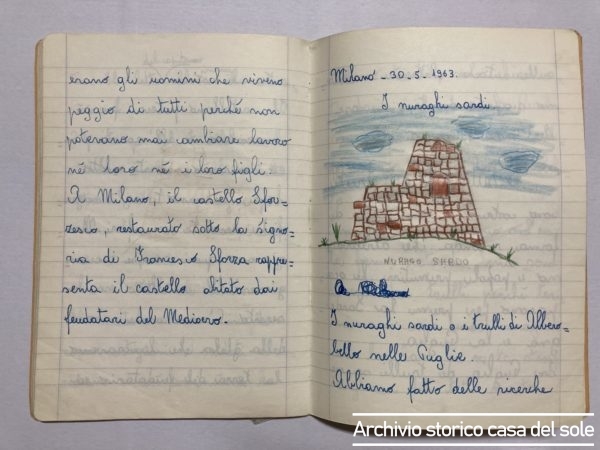 erano gli uomini che vivevano
peggio di tutti perché non
potevano mai cambiare lavoro
né loro né i loro figli.
A Milano, il castello Sfor=
zesco, restaurato sotto la signo=
ria di Francesco Sforza rappre=
senta il castello abitato dai
feudatari del Medioevo.
Milano - 30 - 5 - 1963.
I nuraghi sardi.
NURAGO SARDO
I nuraghi sardi o i trulli di Albero=
bello nelle Puglie.
Abbiamo fatto delle ricerche
Archivio storico casa del sole